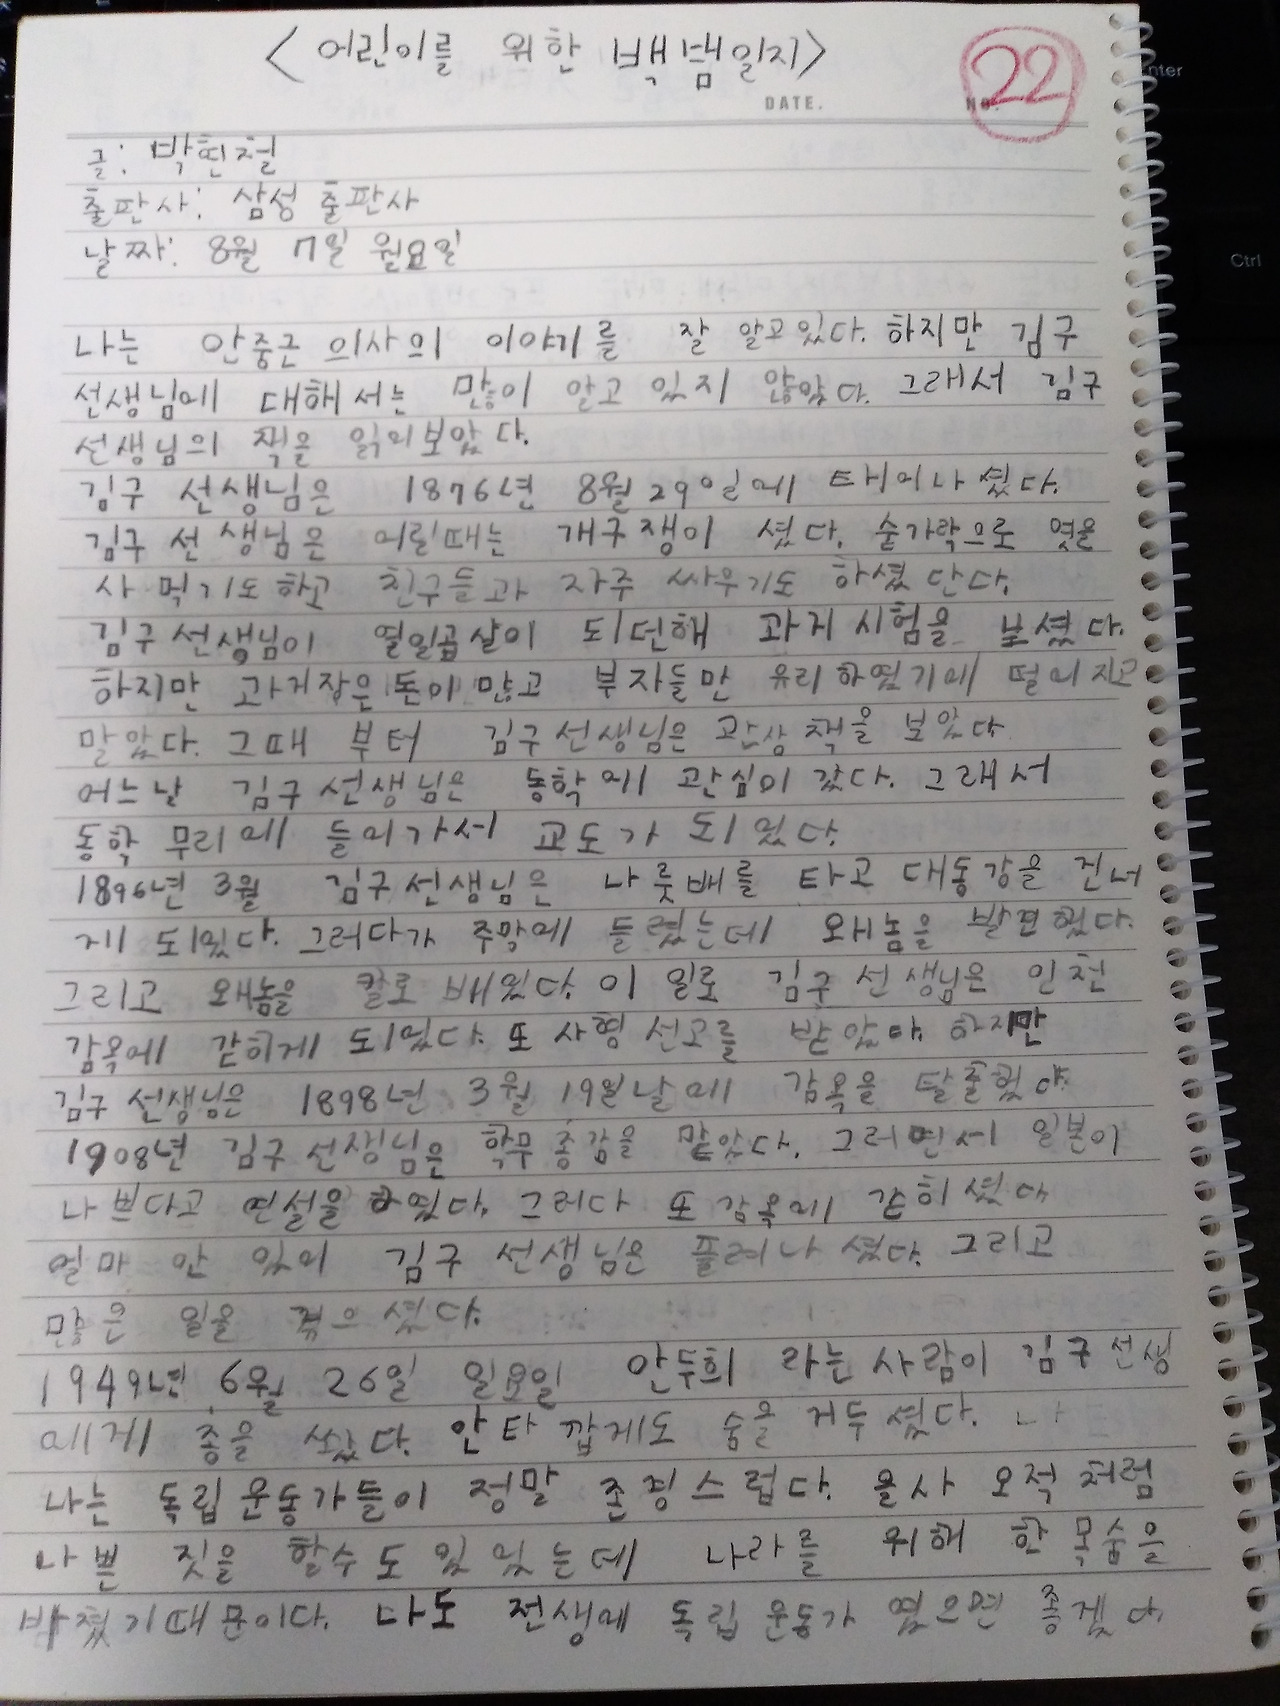 <어린이를 위한 백범일지>
22
DATE.
NO.
글: 박현철
출판사: 삼성 출판사
날짜: 8월 7일 월요일
나는 안중근 의사의 이야기를 잘 알고있다. 하지만 김구
선생님에 대해서는 많이 알고 있지 않았다. 그래서 김구
선생님의 책을 읽어보았다.
김구 선생님은 1876년 8월 29일에 태어나 셨다.
김구 선생님은 어릴때는 개구쟁이 셨다. 숟가락으로 엿을
사 먹기도 하고 친구들과 자주 싸우기도 하셨 단다.
김구선생님이 열일곱살이 되던해 과거 시험을 보셨다.
하지만 과거장은 돈이 많고 부자들만 유리 하였기에 떨어지고
말았다. 그때 부터 김구선생님은 관상 책을 보았다
어느날 김구선생님은 동학에 관심이 갔다. 그래서
동학 무리에 들어가서 교도가 되었다.
1896년 3월 김구선생님은 나룻배를 타고 대동강을 건너
게 되었다. 그러다가 주막에 들렸는데 왜놈을 발견했다.
그리고 왜놈을 칼로 베었다. 이 일로 김구 선생님은 인천
감옥에 갇히게 되었다. 또 사형 선고를 받았다. 하지만
김구 선생님은 1898년 3월 19일날에 감옥을 탈출했다.
1908년 김구선생님은 학무총감을 맡았다. 그러면서 일본이
나쁘다고 연설을 하였다. 그러다 또 감옥에 갇히셨다
얼마 안 있어 김구 선생님은 풀려나 셨다. 그리고
많은 일을 겪으셨다.
1949년 6월 26일 일요일 안두희 라는 사람이 김구선생
에게 총을 쐈다. 안타 깝게도 숨을 거두셨다.
나는 독립운동가들이 정말 존경스럽다. 을사 오적 처럼
나쁜 짓을 할수 도 있었는데 나라를 위해 한 목숨을
바쳤기때문이다. 나도 전생에 독립 운동가 였으면 좋겠다.